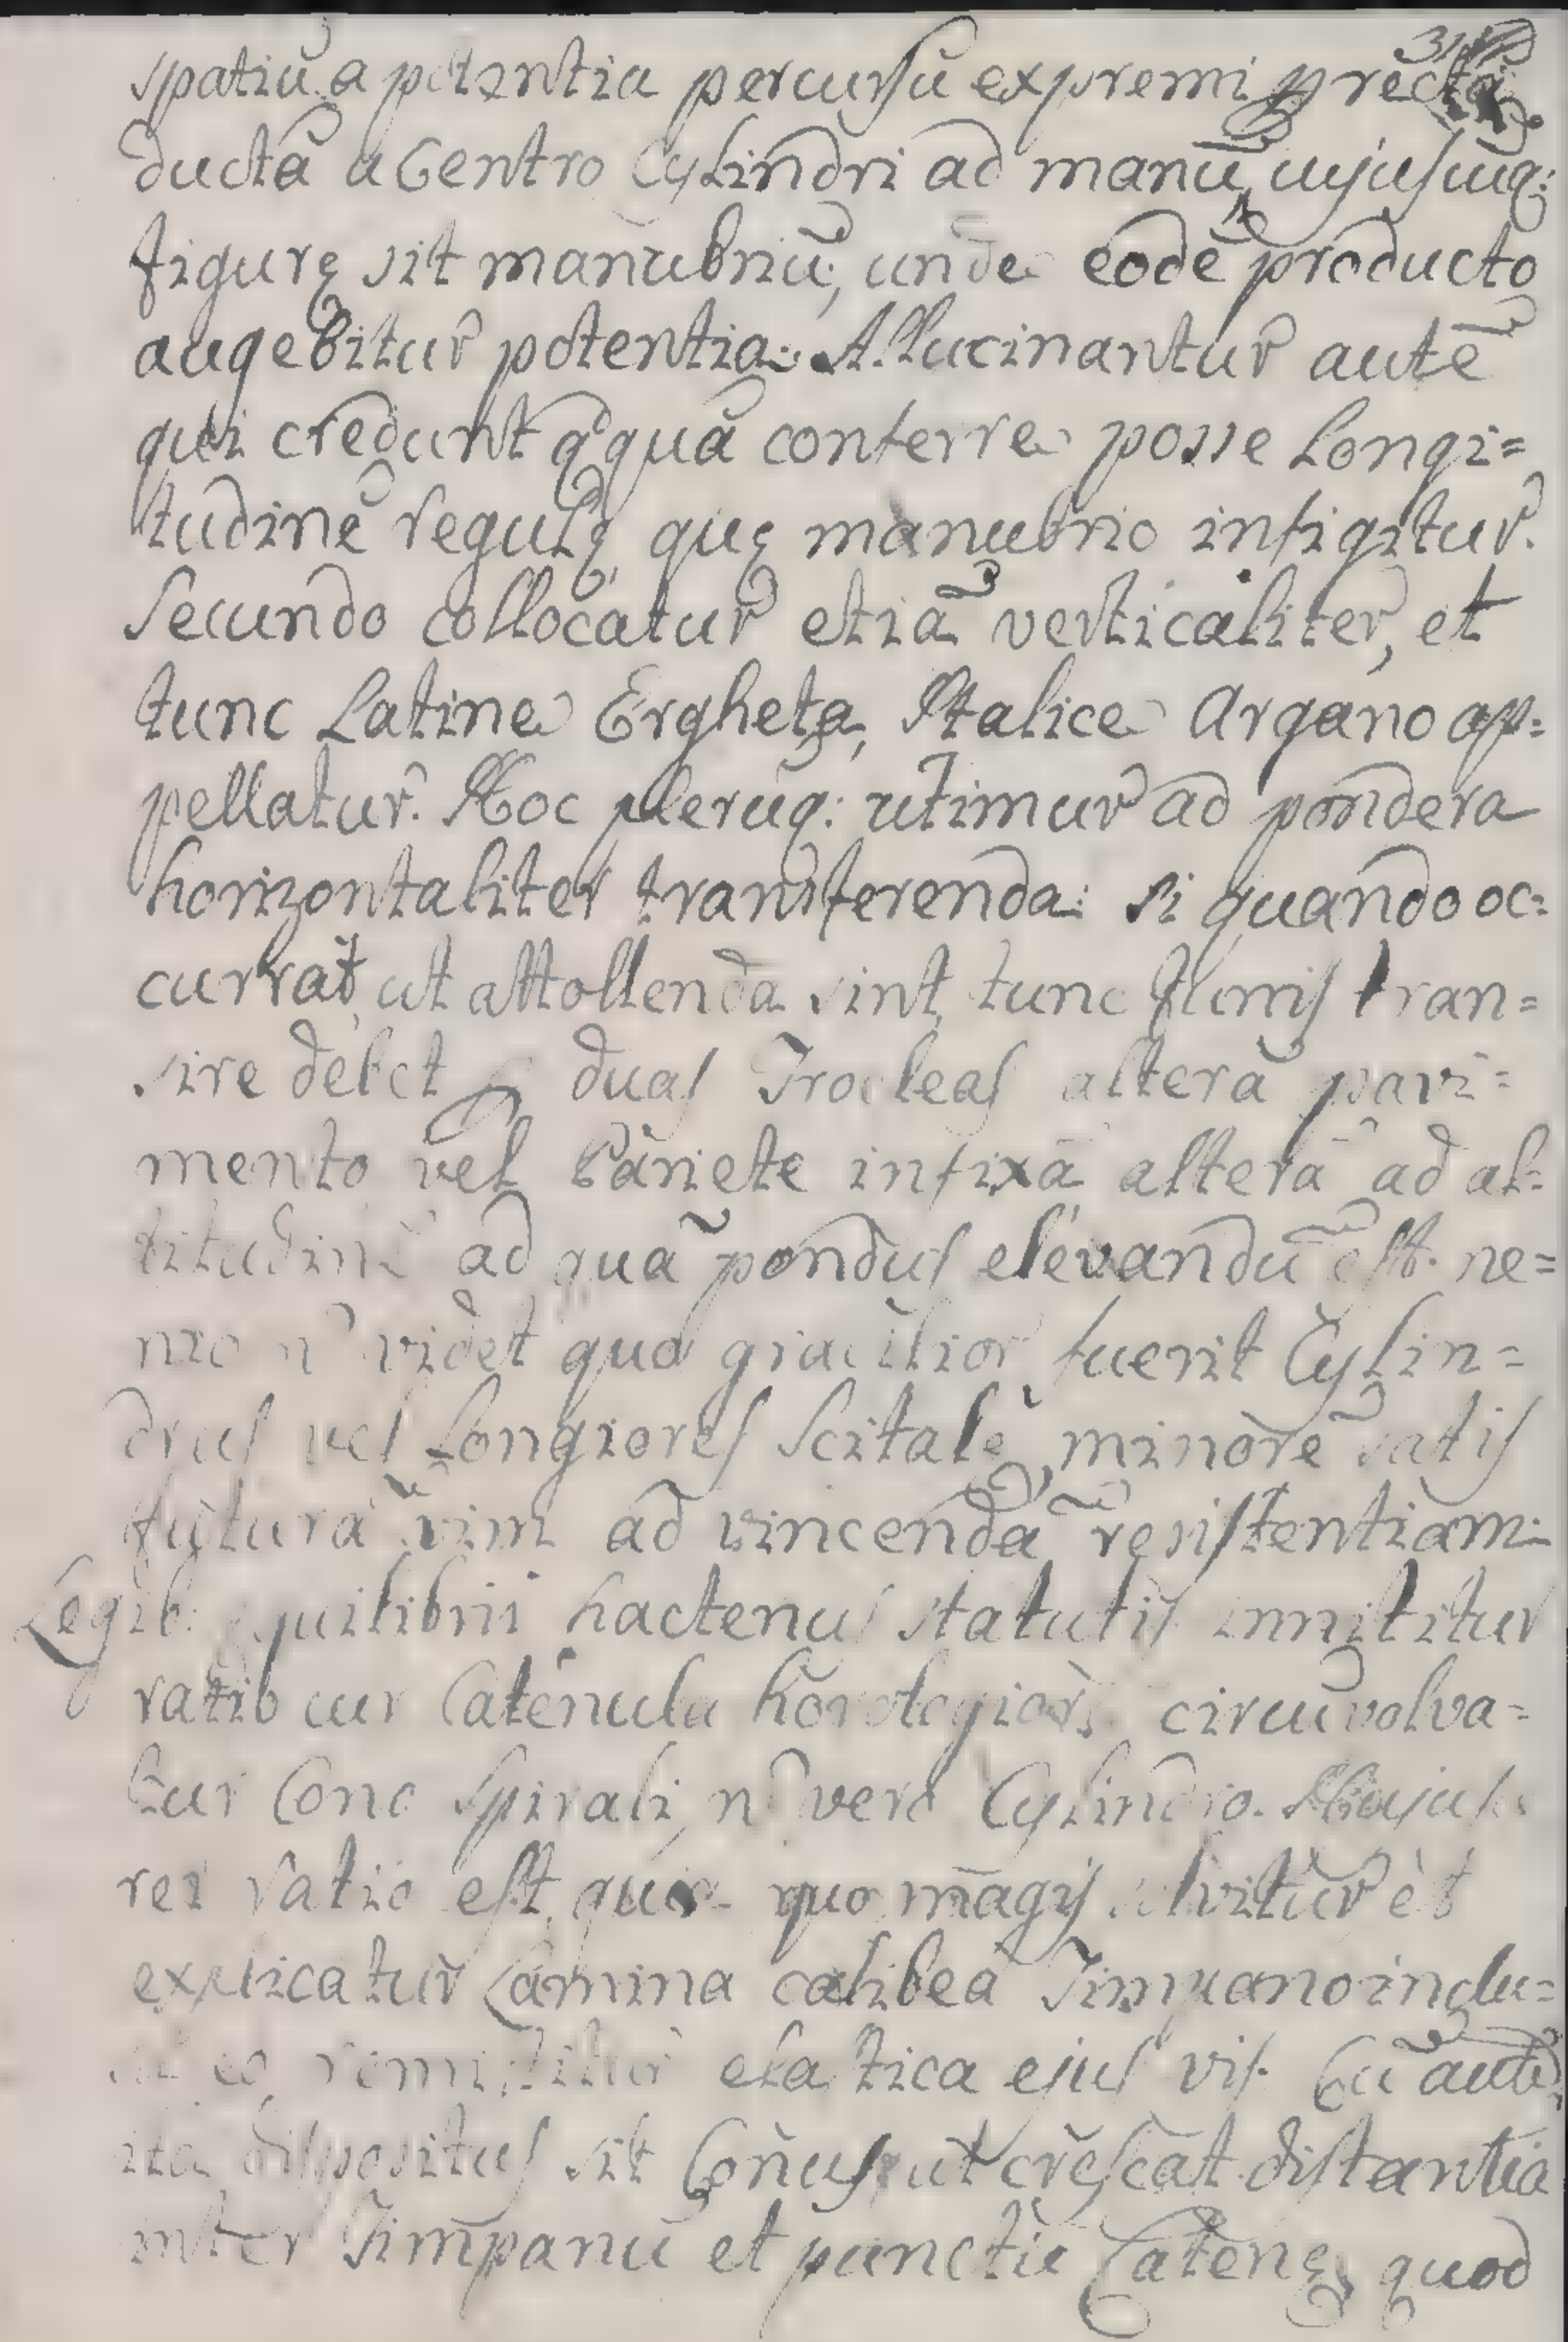 spatiū a potentia percursū expremi p rectā
ductā a Centro Cylindri ad manū, cujuscūq:
figurę sit manubriū; unde eodē producto
augebitur potentia: Allucinantur autē
qui credunt qdquā conferre posse Longi=
tudinē regulę, quę manubrio infigitur.
Secundo collocatur etiā verticaliter, et
tunc Latine Ergheta, Italice Argano ap=
pellatur. Hoc plerūq: utimur ad pondera
horizontaliter transferenda: si quando oc=
currat, ut attollenda sint, tunc funis tran=
sire debet p duas Trocleas alterā pavi=
mento vel Pariete infixā alterā ad al=
titudinē ad quā pondus elevandū est. ne=
mo n videt quo gracilior fuerit Cylin=
drus vel Longiores Scitalę, minorē satis
futurā vim ad vincendā resistentiam:
Legib: equilibrii hactenus statutis innititur
ratio cur Catenula horologiorū circūvolva=
tur Cono Spirali, n vero Cylindro. Hujus
rei ratio est, quia quo magis solvitur et
explicatur Lamina calibea Timpano inclu=
sa eo remittitur elastica ejus vis. Cū autē
ita dispositus sit Conus, ut crescat distantia
inter Timpanū et punctū Catenę, quod